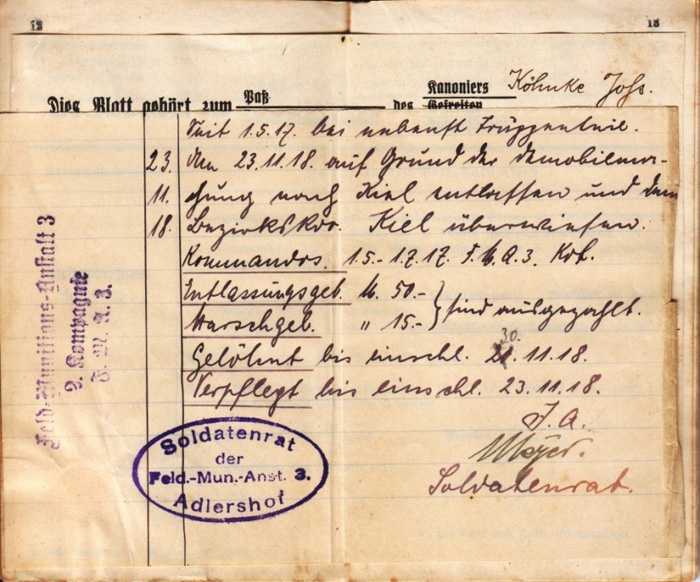 12
13
Dies Blatt gehört zum Paß des Kanoniers Köhnke Johs.
Gefreiten
Seit 1.5.17. bei
23. den 23.11.18. auf Grund der Demobilma-
11. chung nach Kiel entlassen und dem
18. Bezirkskdo. Kiel überwiesen.
Kommandos. 1.5.- 1.7.17. F.M.A.3. Kdt.
Entlassungsgeb. M. 50.-
Marschgeb. " 15.- } sind ausgezahlt.
Gelöhnt bis einschl. 30. 11.18.
Verpflegt bis einschl. 23.11.18.
J.A.
Meyer.
Soldatenrat.
Feld-Munitions-Anstalt 3
2. Kompagnie
F. M. A. 3.
Soldatenrat
der
Feld.-Mun.-Anst. 3.
Adlershof